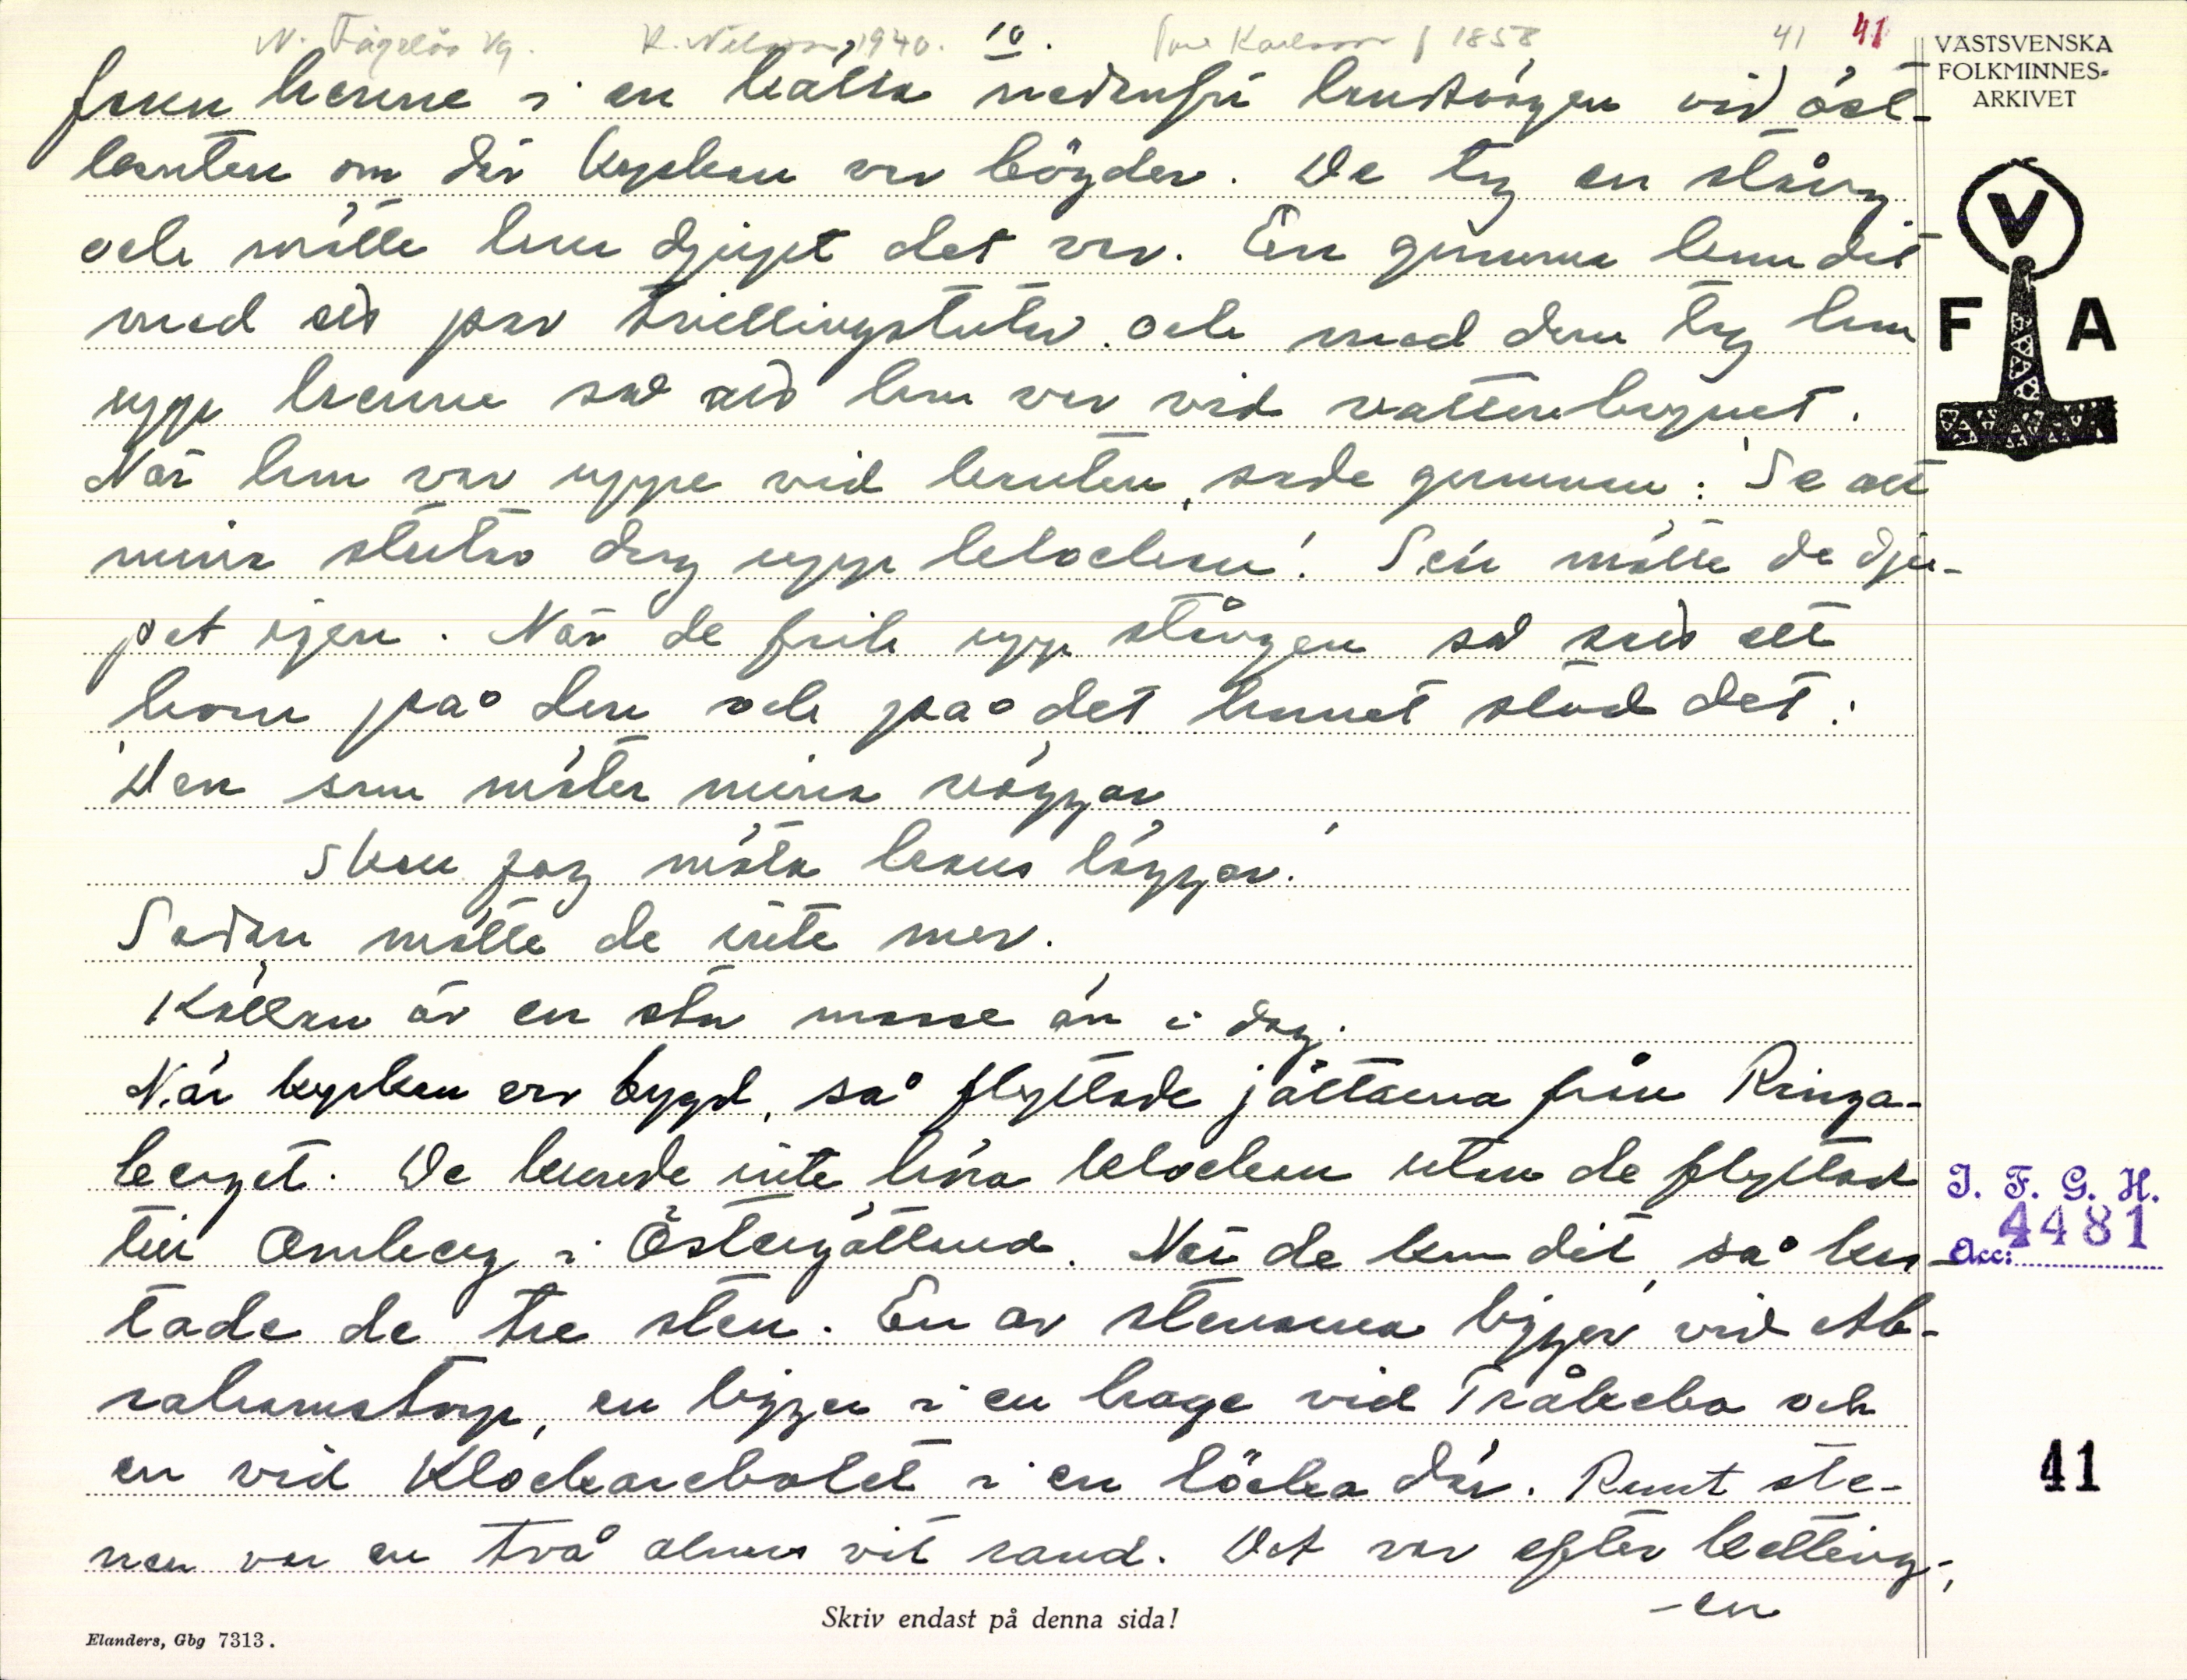 N. Fågelås Vg. K. Nilsson 1940. 10. Karlsson f 1858 41 41
VÄSTSVENSKA
FOLKMINNES-
ARKIVET
fann henne i en källa nedanför landsvägen vid öst-
kanten om där kyrkan var högder. De tog en stång
och mätte hur djupet det var. En gumma kom dit
med ett par tvillingstutar och med dem tog hon
upp henne så att hon var vid vattenbrynet.
När hon var uppe vid kanten, sade gumman: 'Se att
mina stutar drog upp klockan'! Sen mätte de dju-
pet igen. När de fick upp stången så satt ett
horn på den och på det hornet stod det:
'Den som mäter mina väggar
skall jag mäta hans läggar.'
Sedan mätte de inte mer.
Källan är en stor mosse än i dag.
När kyrkan var bygd, så flyttade jättarna från Ringa-
berget. De kunde inte höra klockan utan de flyttad
till Omberg i Östergötland. När de kom dit, så kas-
tade de tre sten. En av stenarna ligger vid Ab-
rahamstorp, en ligger i en hage vid Tråkebo och
en vid Klockarebolet i en löcka där. Runt ste-
nen var en två alnars vit rand. Det var efter kätting-
-en
V
F A
I. F. G. H.
Acc: 4481
41
Skriv endast på denna sida!
Elanders, Gbg 7313.